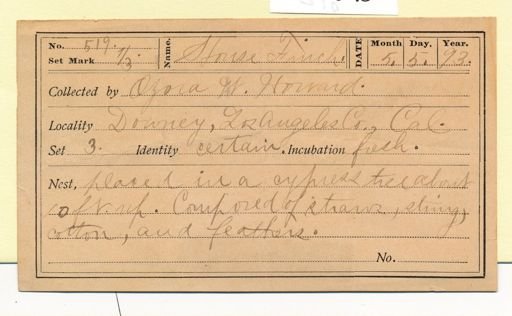 No. 519. Name. House Finch, DATE Month Day. Year.
Set Mark 1/3 5. 5. 93.
Collected by Ozora W. Howard.
Locality Downey, Los Angeles Co., Cal.
Set 3. Identity certain. Incubation fresh.
Nest, placed in a cypress tree about
10 ft up. Composed of straws, string,
cotton, and feathers.
No.